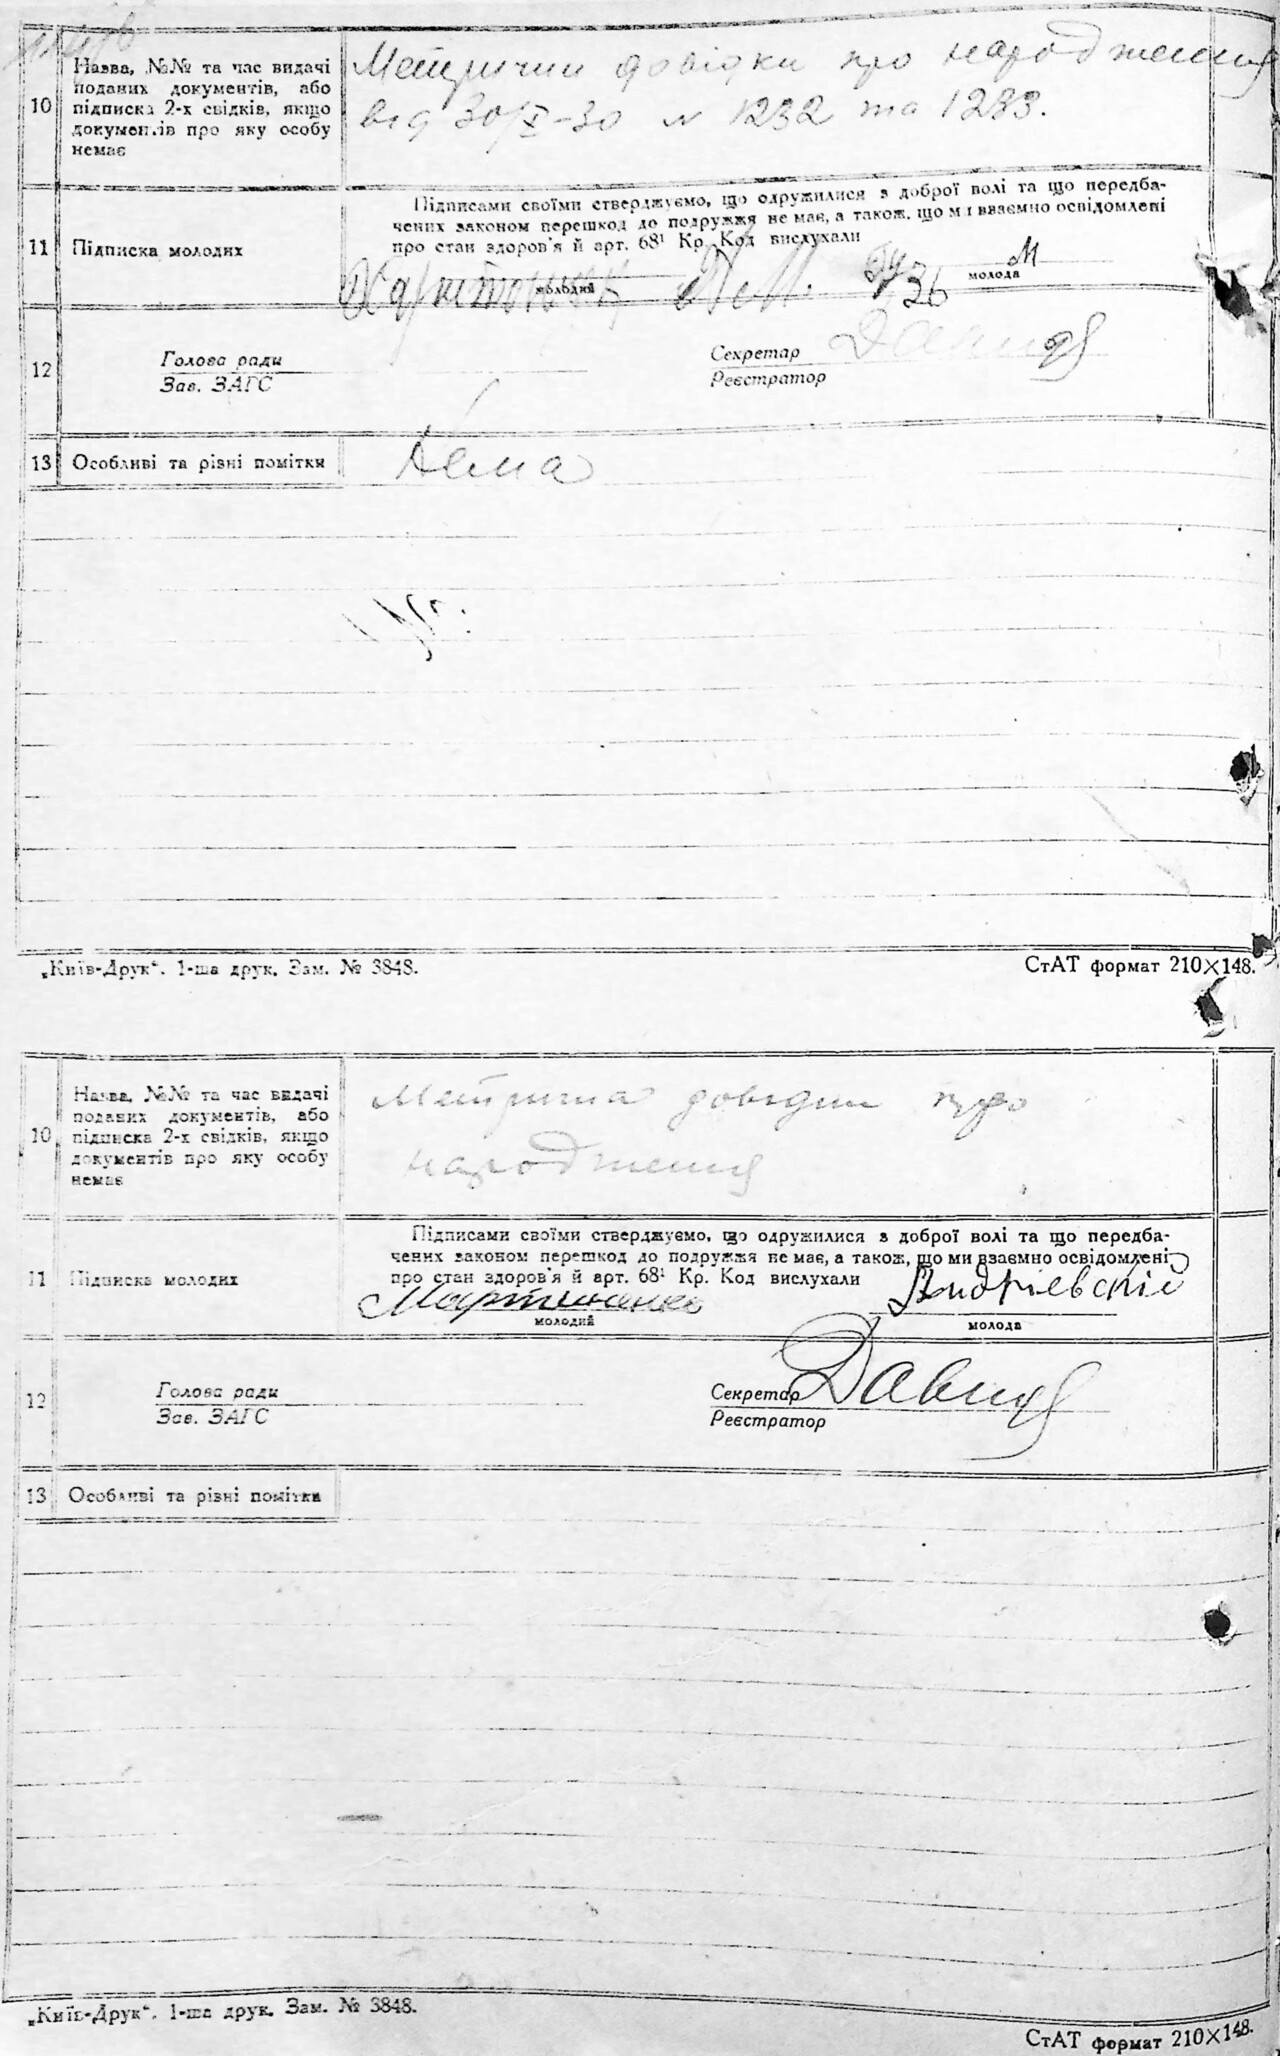 10 Назва, №№ та час видачі
поданих документів, або
підписка 2-х свідків, якщо
документів про яку особу
немає
Метричні довідки про народження
від 30/X-30 N 1232 та 1233.
11 Підписка молодих
Підписами своїми стверджуємо, що одружилися з доброї волі та що передба-
чених законом перешкод до подружжя не має, а також, що ми взаємно освідомлені
про стан здоров'я й арт. 68¹ Кр. Код вислухали
молодий
молода
12 Голова ради
Зав. ЗАГС
Секретар Давид
Реєстратор
13 Особливі та різні помітки
Нема
„Київ-Друк“. 1-ша друк. Зам. № 3848.
СтАТ формат 210×148.
10 Назва, №№ та час видачі
поданих документів, або
підписка 2-х свідків, якщо
документів про яку особу
немає
Метрична довідки про
народження
11 Підписка молодих
Підписами своїми стверджуємо, що одружилися з доброї волі та що передба-
чених законом перешкод до подружжя не має, а також, що ми взаємно освідомлені
про стан здоров'я й арт. 68¹ Кр. Код вислухали
Мартиненко Андріевскій
молодий
молода
12 Голова ради
Зав. ЗАГС
Секретар Давид
Реєстратор
13 Особливі та різні помітки
„Київ-Друк“. 1-ша друк. Зам. № 3848.
СтАТ формат 210×148.